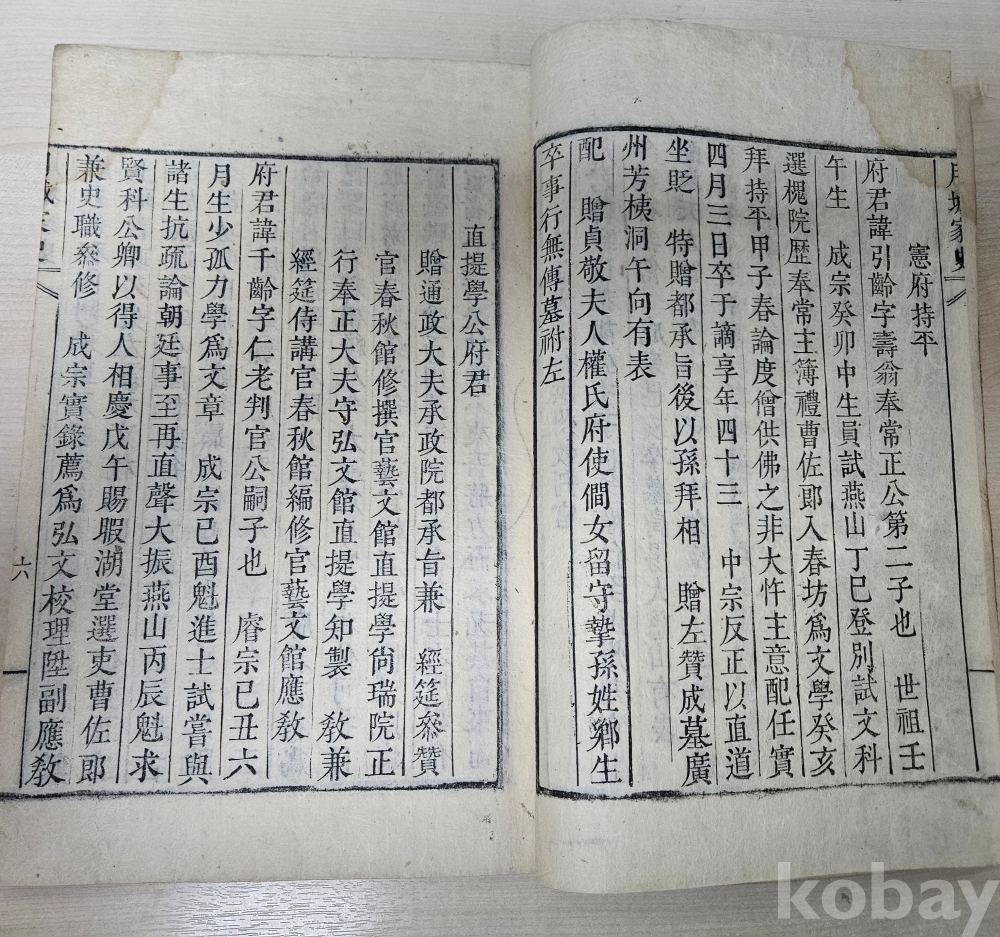 月城家史
憲府持平
府君諱引齡字壽翁奉常正公第二子也 世祖壬
午生 成宗癸卯中生員試燕山丁巳登別試文科
選槐院歷奉常主簿禮曹佐郎入春坊爲文學癸亥
拜持平甲子春論度僧供佛之非大忤主意配任實
四月三日卒于謫享年四十三 中宗反正以直道
坐貶 特贈都承旨後以孫拜相 贈左贊成墓廣
州芳荑洞午向有表
配 贈貞敬夫人權氏府使僩女留守摯孫姓鄕生
卒事行無傳墓祔左
直提學公府君
贈通政大夫承政院都承旨兼 經筵叅贊
官春秋館修撰官藝文館直提學尙瑞院正
行奉正大夫守弘文館直提學知製 敎兼
經筵侍講官春秋館編修官藝文館應敎
府君諱千齡字仁老判官公嗣子也 睿宗己丑六
月生少孤力學爲文章 成宗己酉魁進士試嘗與
諸生抗疏論朝廷事至再直聲大振燕山丙辰魁求
賢科公卿以得人相慶戊午賜暇湖堂選吏曹佐郎
兼史職叅修 成宗實錄薦爲弘文校理陞副應敎
月城家史
六
kobay